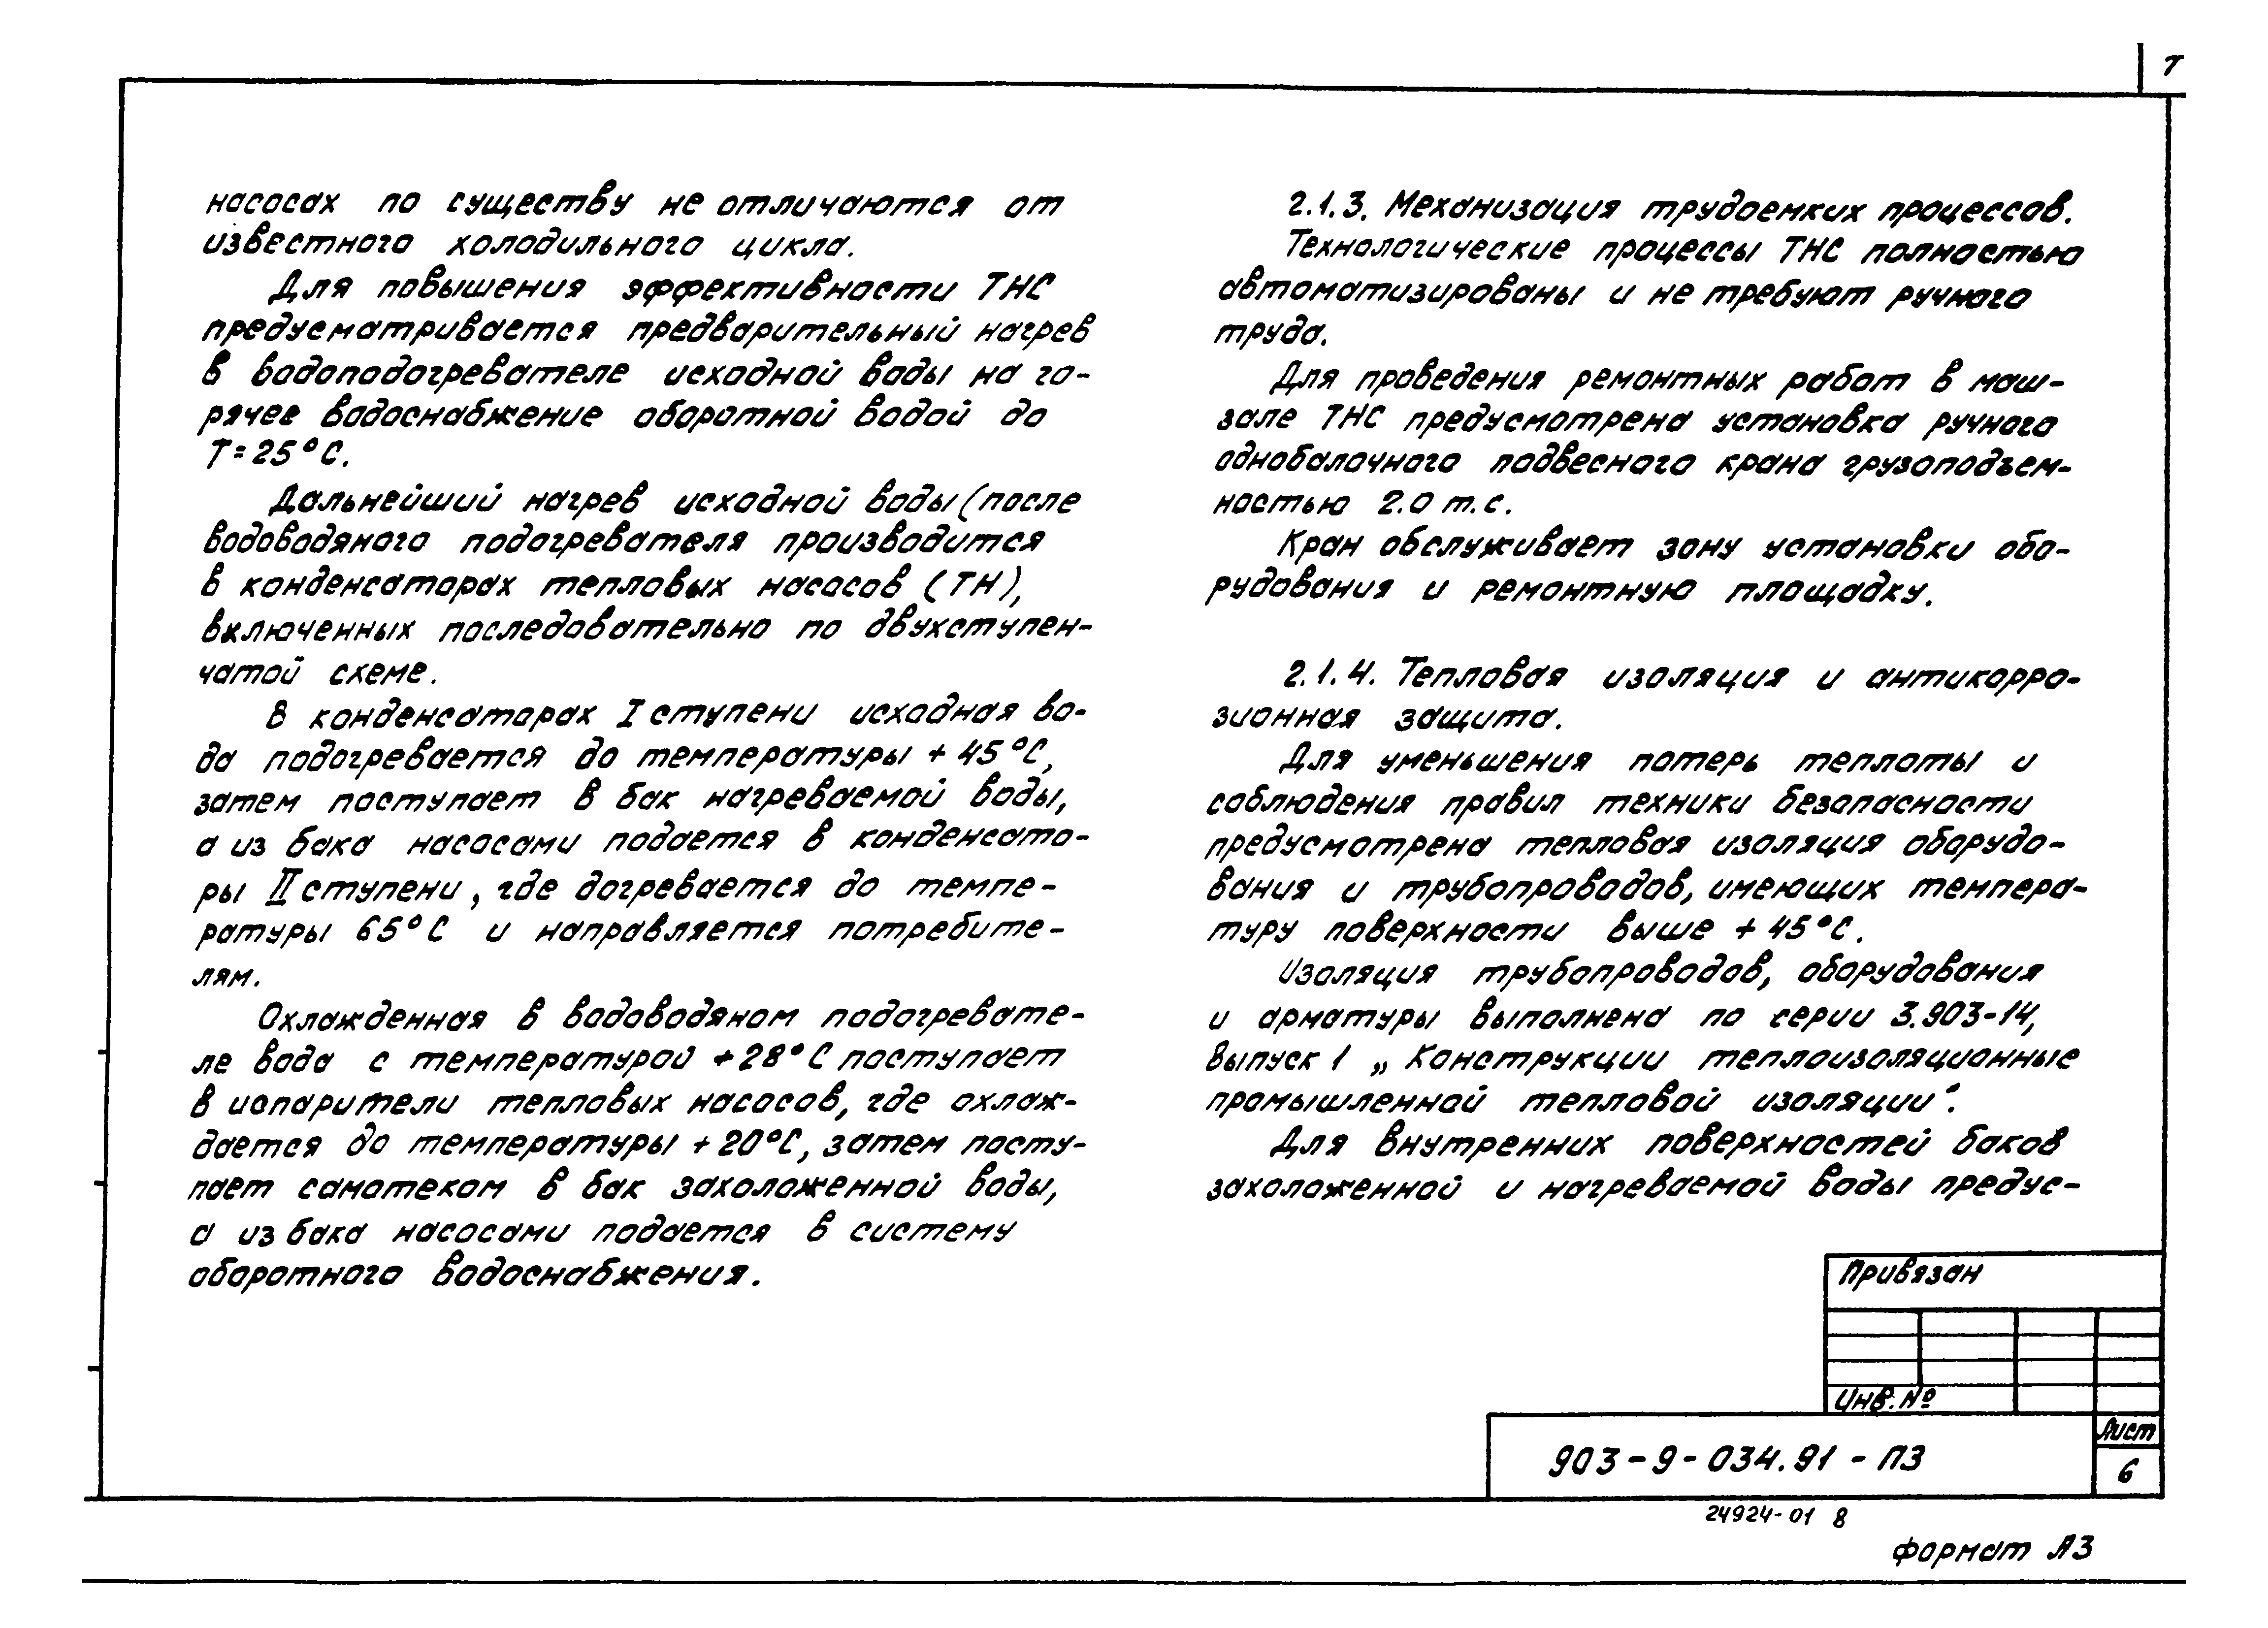 7
насосах по существу не отличаются от
известного холодильного цикла.
Для повышения эффективности ТНС
предусматривается предварительный нагрев
в водоподогревателе исходной воды на го-
рячее водоснабжение оборотной водой до
Т=25°С.
Дальнейший нагрев исходной воды (после
водоводяного подогревателя производится
в конденсаторах тепловых насосов (ТН),
включенных последовательно по двухступен-
чатой схеме.
В конденсаторах I ступени исходная во-
да подогревается до температуры +45°С,
затем поступает в бак нагреваемой воды,
а из бака насосами подается в конденсато-
ры II ступени, где догревается до темпе-
ратуры 65°С и направляется потребите-
лям.
Охлажденная в водоводяном подогревате-
ле вода с температурой +28°С поступает
в испарители тепловых насосов, где охлаж-
дается до температуры +20°С, затем посту-
пает самотеком в бак захоложенной воды,
а из бака насосами подается в систему
оборотного водоснабжения.
2.1.3. Механизация трудоемких процессов.
Технологические процессы ТНС полностью
автоматизированы и не требуют ручного
труда.
Для проведения ремонтных работ в маш-
зале ТНС предусмотрена установка ручного
однобалочного подвесного крана грузоподъем-
ностью 2.0 т.с.
Кран обслуживает зону установки обо-
рудования и ремонтную площадку.
2.1.4. Тепловая изоляция и антикорро-
зионная защита.
Для уменьшения потерь теплоты и
соблюдения правил техники безопасности
предусмотрена тепловая изоляция оборудо-
вания и трубопроводов, имеющих темпера-
туру поверхности выше +45°С.
Изоляция трубопроводов, оборудования
и арматуры выполнена по серии 3.903-14,
выпуск 1 „Конструкции теплоизоляционные
промышленной тепловой изоляции“.
Для внутренних поверхностей баков
захоложенной и нагреваемой воды предус-
Привязан
Инв.№
903-9-034.91-ПЗ
Лист
6
24924-01 8
формат А3